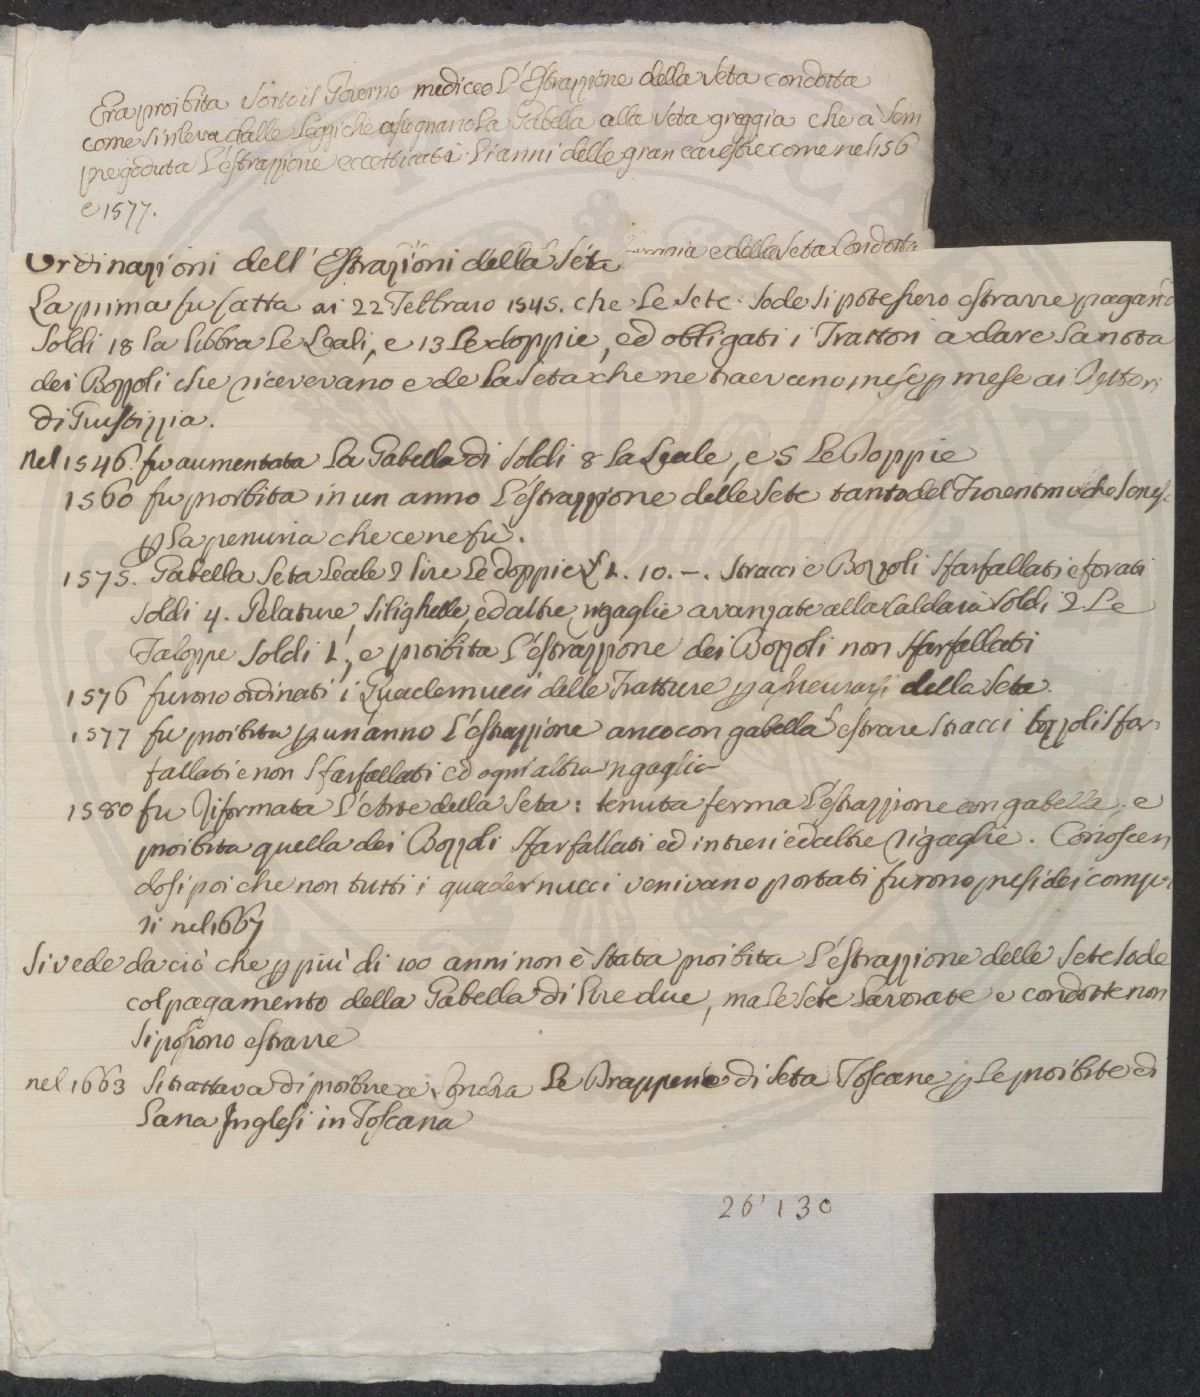 Era proibita sotto il Governo mediceo l'Estrazzione della seta condotta
come si rileva dalle Leggi che assegnano la Gabella alla seta greggia che à sem
pre goduta l'estrazzione eccettuati gl'anni delle gran carestie come nel 156
e 1577.
e della seta Condotta
Ordinazioni dell' Estrazioni della Seta
La prima fu fatta ai 22 Febbraro 1545. che le sete sode si potessero estrarre pagand
soldi 18 la libbra le leali, e 13 le doppie, ed obbligati i Trattori a dare la nota
dei Bozzoli che ricevevano e de la seta che ne traevano, mese p mese ai
di Giustizzia.
nel 1546 fu aumentata la Gabella di soldi 8 la leale, e 5 le Doppie
1560 fu proibita in un anno l'estrazzione delle sete tanto del Fiorentino che senes
p la penuria che ce ne fù.
1575. Gabella seta leale 2 lire le doppie £ 1. 10. —. stracci e Bozzoli sfarfallati e forati
soldi 4. Pelature, silighelle, ed altre rigaglie avanzate alla caldaia soldi 2. Le
Faloppe soldi 1, e proibita l'estrazzione dei Bozzoli non sfarfallati
1576 furono ordinati i Quadernucci delle Tratture p assicurarsi della seta
1577 fu proibita p un'anno l'estrazzione anco con gabella estrare stracci bozzoli sfar=
fallati e non sfarfallati ed ogni altra rigaglia
1580 fu riformata l'Arte della Seta: tenuta ferma l'estrazzione con gabella, e
proibita quella dei Bozzoli sfarfallati ed interi ed altre rigaglie. Conoscen
dosi poi che non tutti i quadernucci venivano portati furono presi dei
nel 1667
Si vede da ciò che p più di 100 anni non è stata proibita l'estrazzione delle sete sode
col pagamento della Gabella di lire due, ma le sete lavorate e condotte non
si possono estrarre
nel 1663 si trattava di proibire a Londra le Drapperie di seta Toscane p le proibite di
Lana Inglesi in Toscana
26' 130